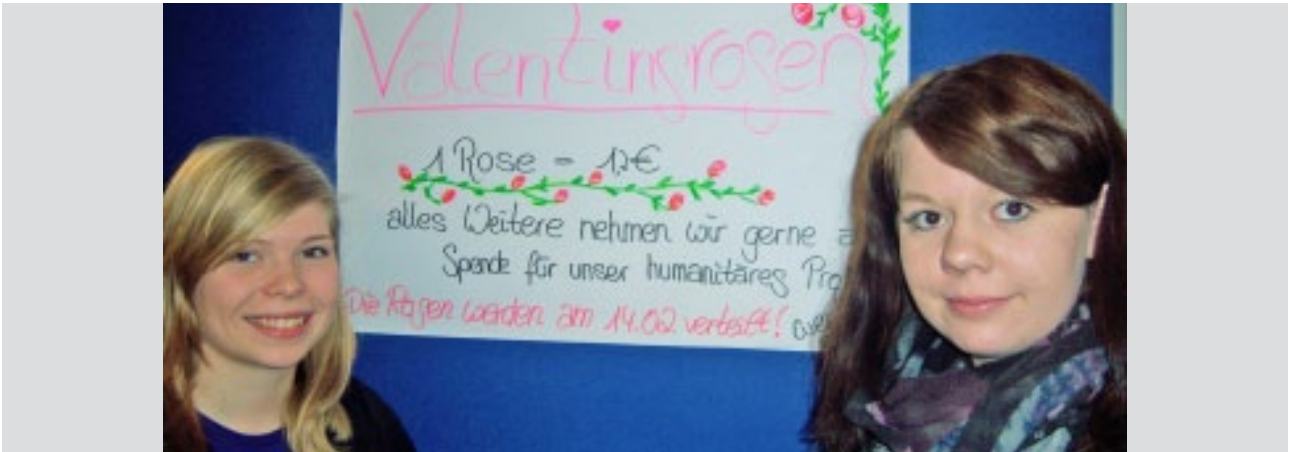 Valentinsrosen
1 Rose = 1,-€
alles Weitere nehmen wir gerne a
Spende für unser humanitäres Pro
Die Rosen werden am 14.02 verteilt!